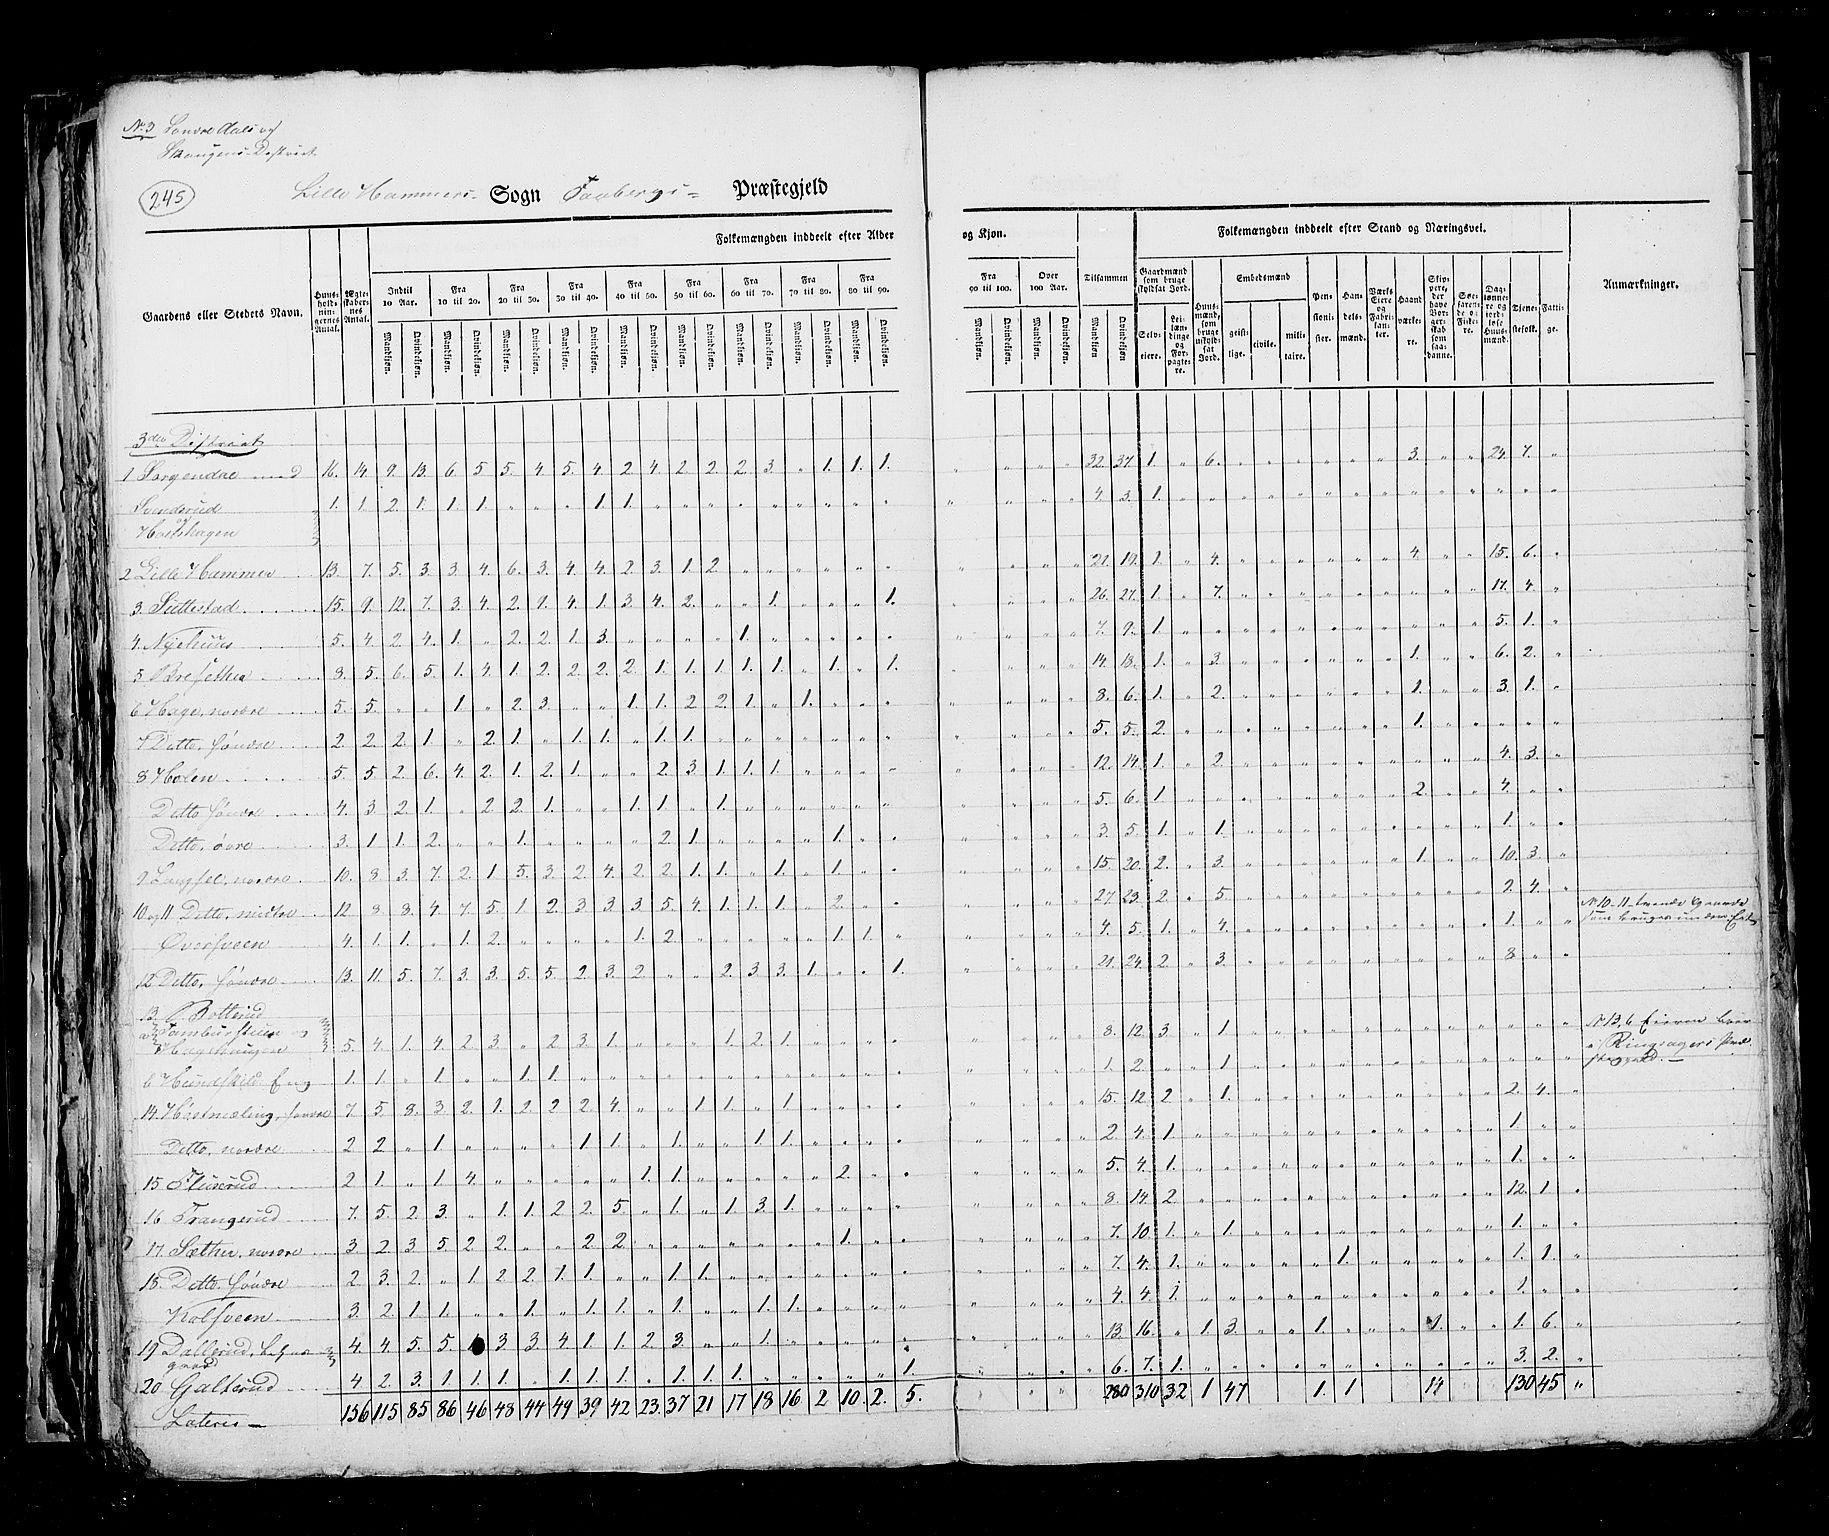 No 3 Søndre Aals og
Skougens District
245
Lille Hammers Sogn Faabergs Præstegjeld
Gaardens eller Stedets Navn.
Huusholdningernes Antal.
Ægteskabernes Antal.
Folkemængden inddeelt efter Alder
og Kjøn.
Indtil 10 Aar.
Fra 10 til 20.
Fra 20 til 30.
Fra 30 til 40.
Fra 40 til 50.
Fra 50 til 60.
Fra 60 til 70.
Fra 70 til 80.
Fra 80 til 90.
Fra 90 til 100.
Over 100 Aar.
Tilsammen
Mandkjøn. Qvindekjøn.
Folkemængden inddeelt efter Stand og Næringsvei.
Gaardmænd som bruge skyldsat Jord.
Selveiere.
Leilændinge og Forpagtere.
Huusmænd, som bruge uskyldsat Jord.
Embedsmænd
geistlige. civile. militaire.
Pensionister.
Handelsmænd.
Værks Eiere og Fabrikanter.
Haandværkere.
Skippere, der have Borgerskab som saadanne.
Søefarende og Fiskere.
Daglønnere og jordløse Huusmænd.
Tjenestefolk.
Fattige.
Anmærkninger.
3die District
1 Sorgendal med 16. 14. 9. 13. 6. 5. 5. 4. 5. 4. 2. 4. 2. 2. 2. 3. " 1. 1. 1. 32. 37. 1. " 6. 3. 24. 7.
Svenderud 1. 1. 2. 1. 1. 1. 1. 1. 4. 3. 1.
og
Holshagen
2 Lille Hammer 13. 7. 5. 3. 3. 4. 6. 3. 4. 4. 2. 3. 1. 2 21. 19. 1. " 4. 4. 15. 6.
3. Suttestad 15. 9. 12. 7. 3. 4. 2. 9. 4. 1. 3. 4. 2. 1. 1. 26. 27. 1. " 7. 17. 4.
4. Nyehuus 5. 4. 2. 4. 1. " 2. 2. 1. 3. 1. 7. 9. 1. 5. 1.
5. Bresethen 8. 5. 6. 5. 1. 4. 1. 2. 2. 2. 2. 1. 1. 1. 1. 1. " 1. " 1. 14. 18. 1. " 3. 1. 6. 2.
6 Hage, nordre 5. 5. 1. " 2. 3. 1. 1. 2 2. 1. " 1. 8. 6. 1. " 2. 1. 3. 1.
7 Ditto, søndre 2. 2. 2. 1 " 2. 1. " 1. 1. " 1. 1. 5. 5. 2. 1.
8 Holen 5. 5. 2. 6. 4. 2. 1. 2. 1. 2. 3. 1. 1. 1. 12. 14. 1. " 2. 4. 3.
Ditto søndre 4. 3. 2. 1. " 2 2. 1. 1. 1. " 1. 5. 6. 1 2. 4.
Ditto, øvre 3. 1 1. 2. 1. 2. 1. 1. 3. 5. 1. " 1. 1.
9 Langsel, nordre 10. 8 3. 7. 2. 1 5. 3. 2. 4. 2. 2. 1. 1. " 1. " 1. 15. 20. 2. " 3. 1. 10. 3.
10 og 11 Ditto, midtre 12 8. 8. 4. 7. 5. 1 2. 3. 3. 3. 5. 4. 1. 1. 1. " 2. 27. 23. 2. " 5. 2. 4. No 10-11 tvende Gaarde
som bruges under Eet
Øversveen 4. 1. 1. " 1. 2. 1. 2. 1. 1. 4. 5. 1. " 4. 1.
12 Ditto, søndre 13. 11. 5. 7. 3. 3. 5. 5. 2. 3. 2. 2. 3. 3. 1. 1. 21. 24. 2. " 3. 8
13. Rotterud
a Tamburstuen og
Hagehaugen 5. 4. 1. 4. 2. 3. " 2. 3. 1. 1. 2. 1. 8. 12. 3. " 1. No 13. b Eieren boer
i Ringsagers Præ
stegjeld.
b Hundskild Eng 1. 1. " 1. 1. 1. 1. 2. 1.
14. Hostmæling, søndre 7. 5. 8. 3. 2. 1. 2. 2. 2. 4. 1. 1. " 1. 15. 12. 2. " 1. 2. 4.
Ditto, nordre 2. 2. " 1. 1. 1. " 1. 1. 1. 2. 4. 1 1.
15 Flixerud 2 1. " 1. 4. 1. 1. 2. 5. 4. 1. 1.
16 Trangerud 7. 5. 2. 3. " 1. 1. 2. 2. 5. " 1. " 1. 3. 1. 8. 14. 2. 12. 1.
17. Sæther, nordre 3. 2. 3. 5. 2. 2. 2. 2. 1. 7. 10. 1. " 1. 1.
18. Ditto søndre 2. 3. 2. " 1. 2. 2. 1. 1. 1. 1. 7. 4. 1. 1. 1. 1.
Kolsveen 3. 2. 1. 1. 1. " 1. 1. " 1. 1. 1. 4. 4. 1 1.
19 Dallerud,
gaard 4. 4. 5. 5. 3. 3. 4. 1. 1. 2. 3. 1. 13. 16. " 1. 3. 1. 1. 1. 6.
20 Galterud 4. 2. 3. 1. 1. 1. " 1. 1. 1. " 1. 1. 1. 1. 6. 7. 1. 3. 2.
Lateris 136 115 85 86 46 48 44 49 39 42 23. 37 21 17 18 16 2 10. 2. 5. 280 310 32 1 47 1. 1 14 130 45 "